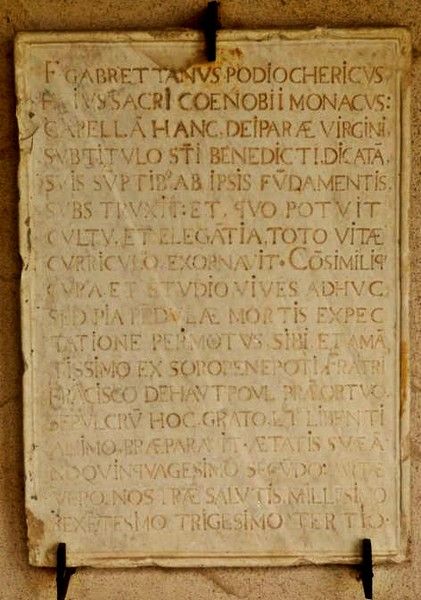 F GABRETTANVS PODIOCHERICVS
SACRI COENOBII MONACVS:
CAPELLĀ HANC, DEIPARÆ VIRGINI
SVBTITVLO STI BENEDICTI, DICATĀ,
SVIS SVPTIB AB IPSIS FŪDAMENTIS,
SVBSTRVXIT: ET, QVO POTVIT
CVLTV, ET ELEGĀTIA, TOTO VITÆ
CVRRICVLO, EXORNAVIT · CŌSIMILIQ
CVRA ET STVDIO VIVES ADHVC,
SED PIA PĒDVLÆ MORTIS EXPEC
TATIONE PERMOTVS, SIBI ET AMĀ
TISSIMO EX SORORE NEPOTI, FRATRI
FRĀCISCO DEHAVTPOVL PRÆMORTVO,
SEPVLCRŪ HOC, GRATO, ET LIBENTI
ANIMO, PRÆPARAVIT · ÆTATIS SVÆ Ā
NO QVINQVAGESIMO SECŪDO:
VERO NOSTRÆ SALVTIS, MILLESIMO
SEXCĒTESIMO TRIGESIMO TERTIO ·